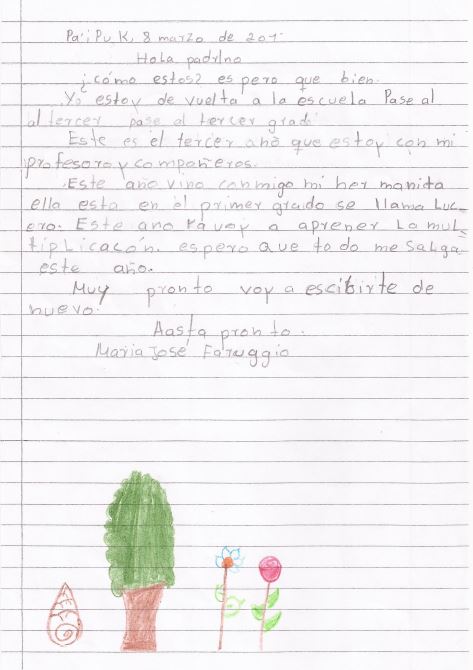 Pa'i Puk, 8 marzo de 201
Hola padrino
¿cómo estos? es pero que bien.
Yo estoy de vuelta a la escuela Pase al
al tercer pase al tercer grado
Este es el tercer año que estoy con mi
profesora y compañeros.
Este año vino conmigo mi her manita
ella esta en el primer grado se llama Luc_
ero. Este ano ya voy a aprener la mul_
tiplicacón. espero que to do me salga
este año.
Muy pronto voy a escibirte de
nuevo.
Aasta pronto.
Maria José Faruggio